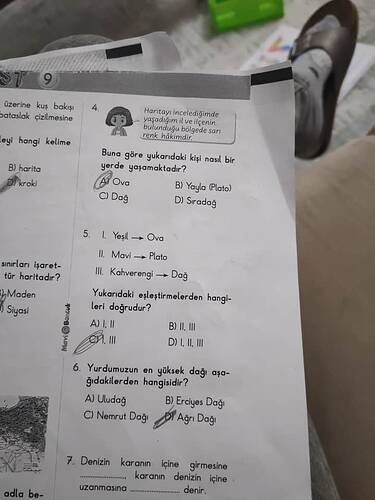 ST 9
üzerine kuş bakışı
bataslak çizilmesine
leyi hangi kelime
B) harita
D) kroki
sınırları işaret-
tür haritadır?
B) Maden
D) Siyasi
adla be-
Mavi Boncuk
4.
Haritayı incelediğimde
yaşadığım il ve ilçenin
bulunduğu bölgede sarı
renk hâkimdir.
Buna göre yukarıdaki kişi nasıl bir
yerde yaşamaktadır?
A) Ova B) Yayla (Plato)
C) Dağ D) Sıradağ
5. I. Yeşil → Ova
II. Mavi → Plato
III. Kahverengi → Dağ
Yukarıdaki eşleştirmelerden hangi-
leri doğrudur?
A) I, II B) II, III
C) I, III D) I, II, III
6. Yurdumuzun en yüksek dağı aşa-
ğıdakilerden hangisidir?
A) Uludağ B) Erciyes Dağı
C) Nemrut Dağı D) Ağrı Dağı
7. Denizin karanın içine girmesine
.............. karanın denizin içine
uzanmasına .............. denir.